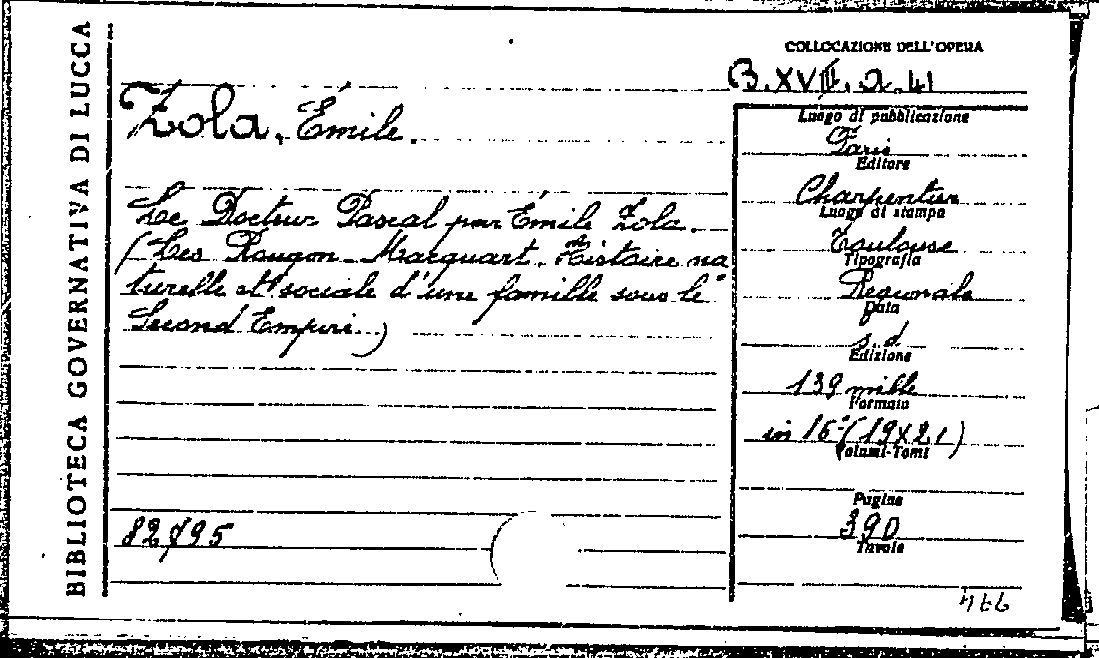 BIBLIOTECA GOVERNATIVA DI LUCCA
COLLOCAZIONE DELL'OPERA
B.XVII.2.41
Zola, Émile.
Le Docteur Pascal par Émile Zola.
(Les Rougon-Macquart. Histoire na
turelle et sociale d'une famille sous le
Second Empire.)
82795
Luogo di pubblicazione
Paris
Editore
Charpentier
Luogo di stampa
Toulouse
Tipografia
Regionale
Data
s.d
Edizione
139 mille
Formato
in 16° (19X21)
Volumi-Tomi
Pagine
390
Tavole